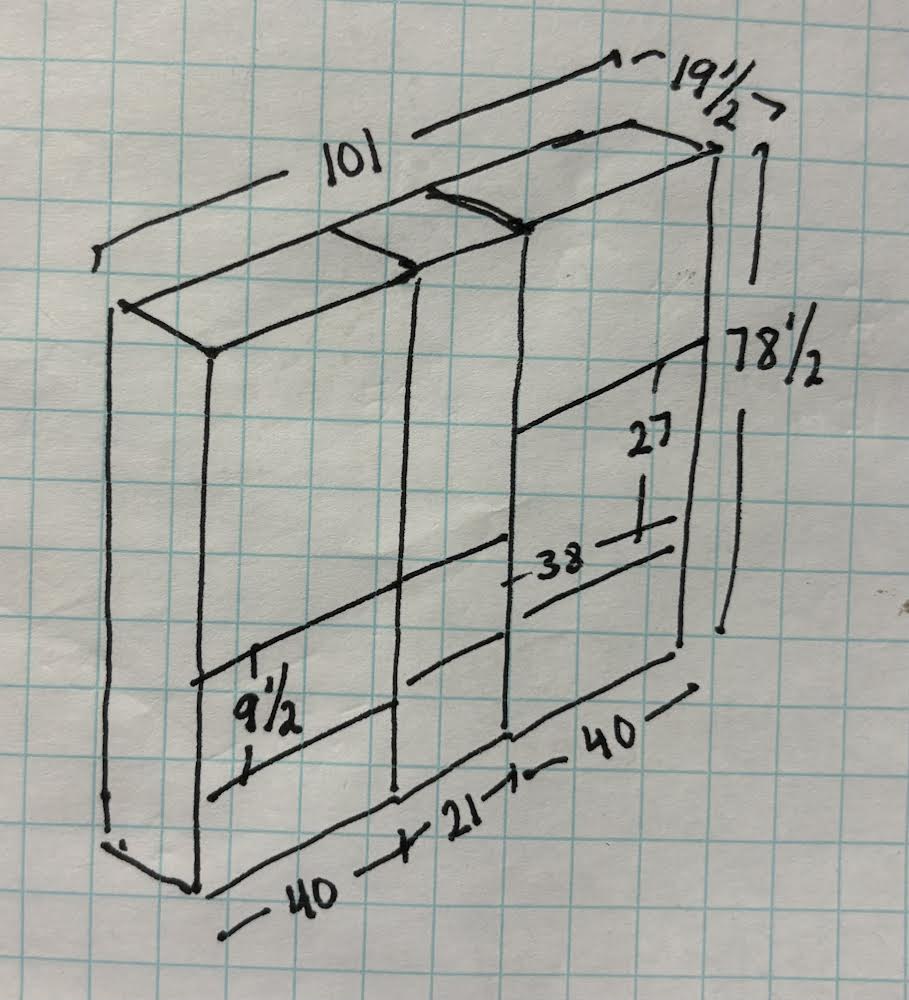 19 1/2
101
78 1/2
27
38
9 1/2
40
21
40